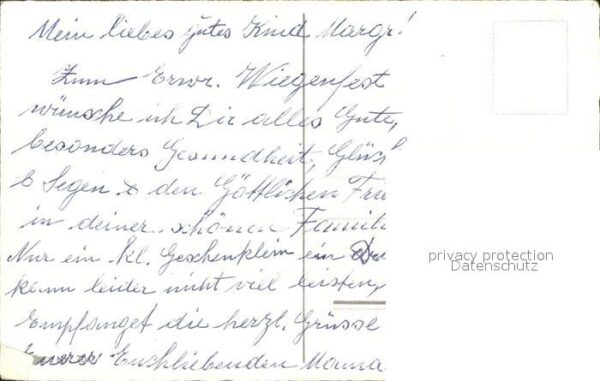 Mein liebes gutes Kind Margr!
Zum Erwr. Wiegenfest
wünsche ich Dir alles Gute,
besonders Gesundheit, Glück
& Segen & den Göttlichen Fri
in deiner schönen Famili
Nur ein kl. Geschenklein ein
kann leider nicht viel leisten,
Empfanget die herzl. Grüsse
Euchliebenden Mama
privacy protection
Datenschutz